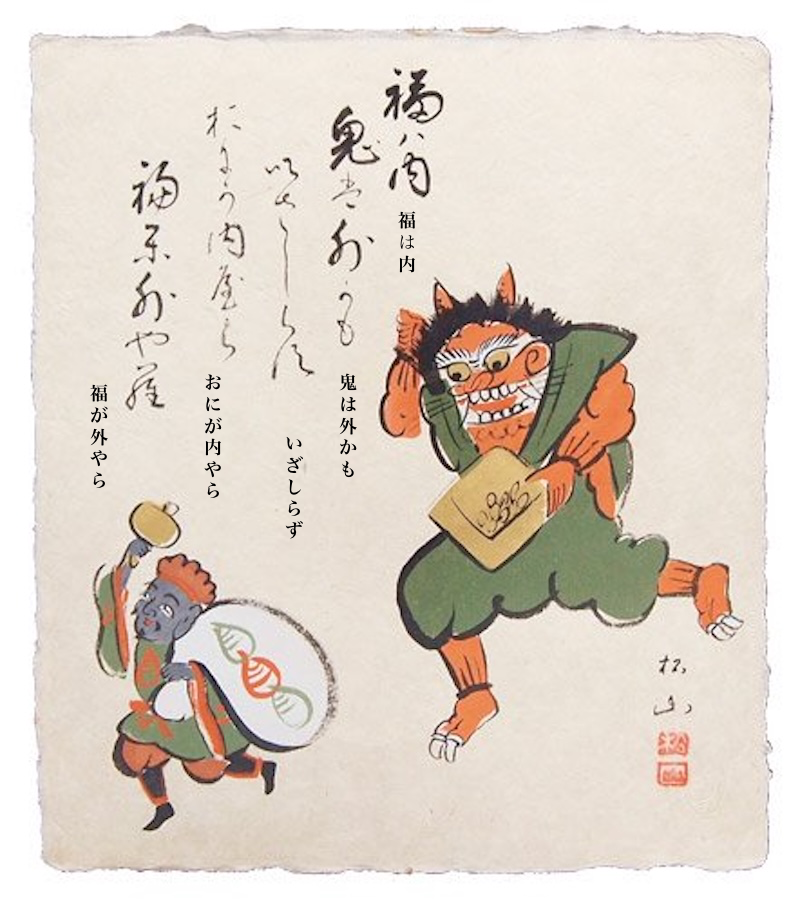 福ハ内
福は内
鬼は外かも
鬼は外かも
いさしらす
いざしらず
おにか内屋ら
おにが内やら
福が外や羅
福が外やら
松山
松山